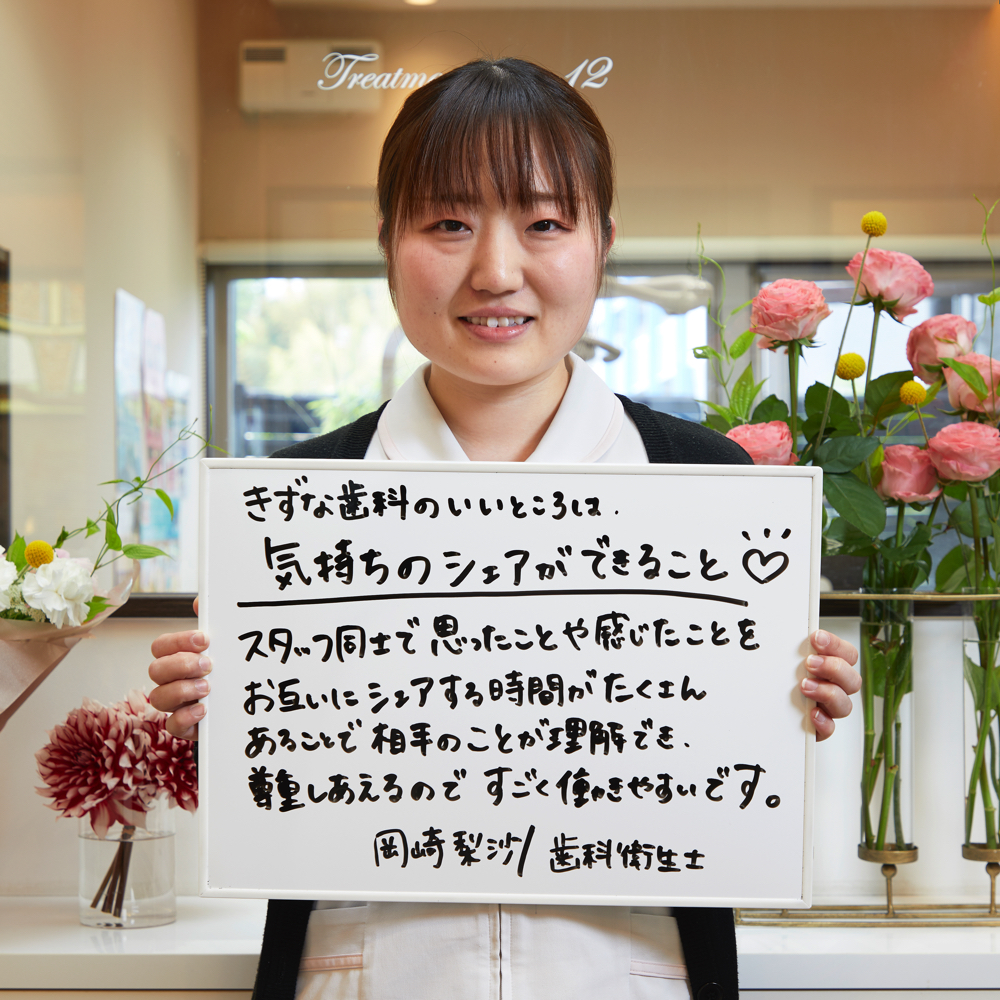 Treatme 12
きずな歯科のいいところは、
気持ちのシェアができること♡
スタッフ同士で思ったことや感じたことを
お互いにシェアする時間がたくさん
あることで相手のことが理解でき、
尊重しあえるのですごく働きやすいです。
岡崎梨沙/歯科衛生士